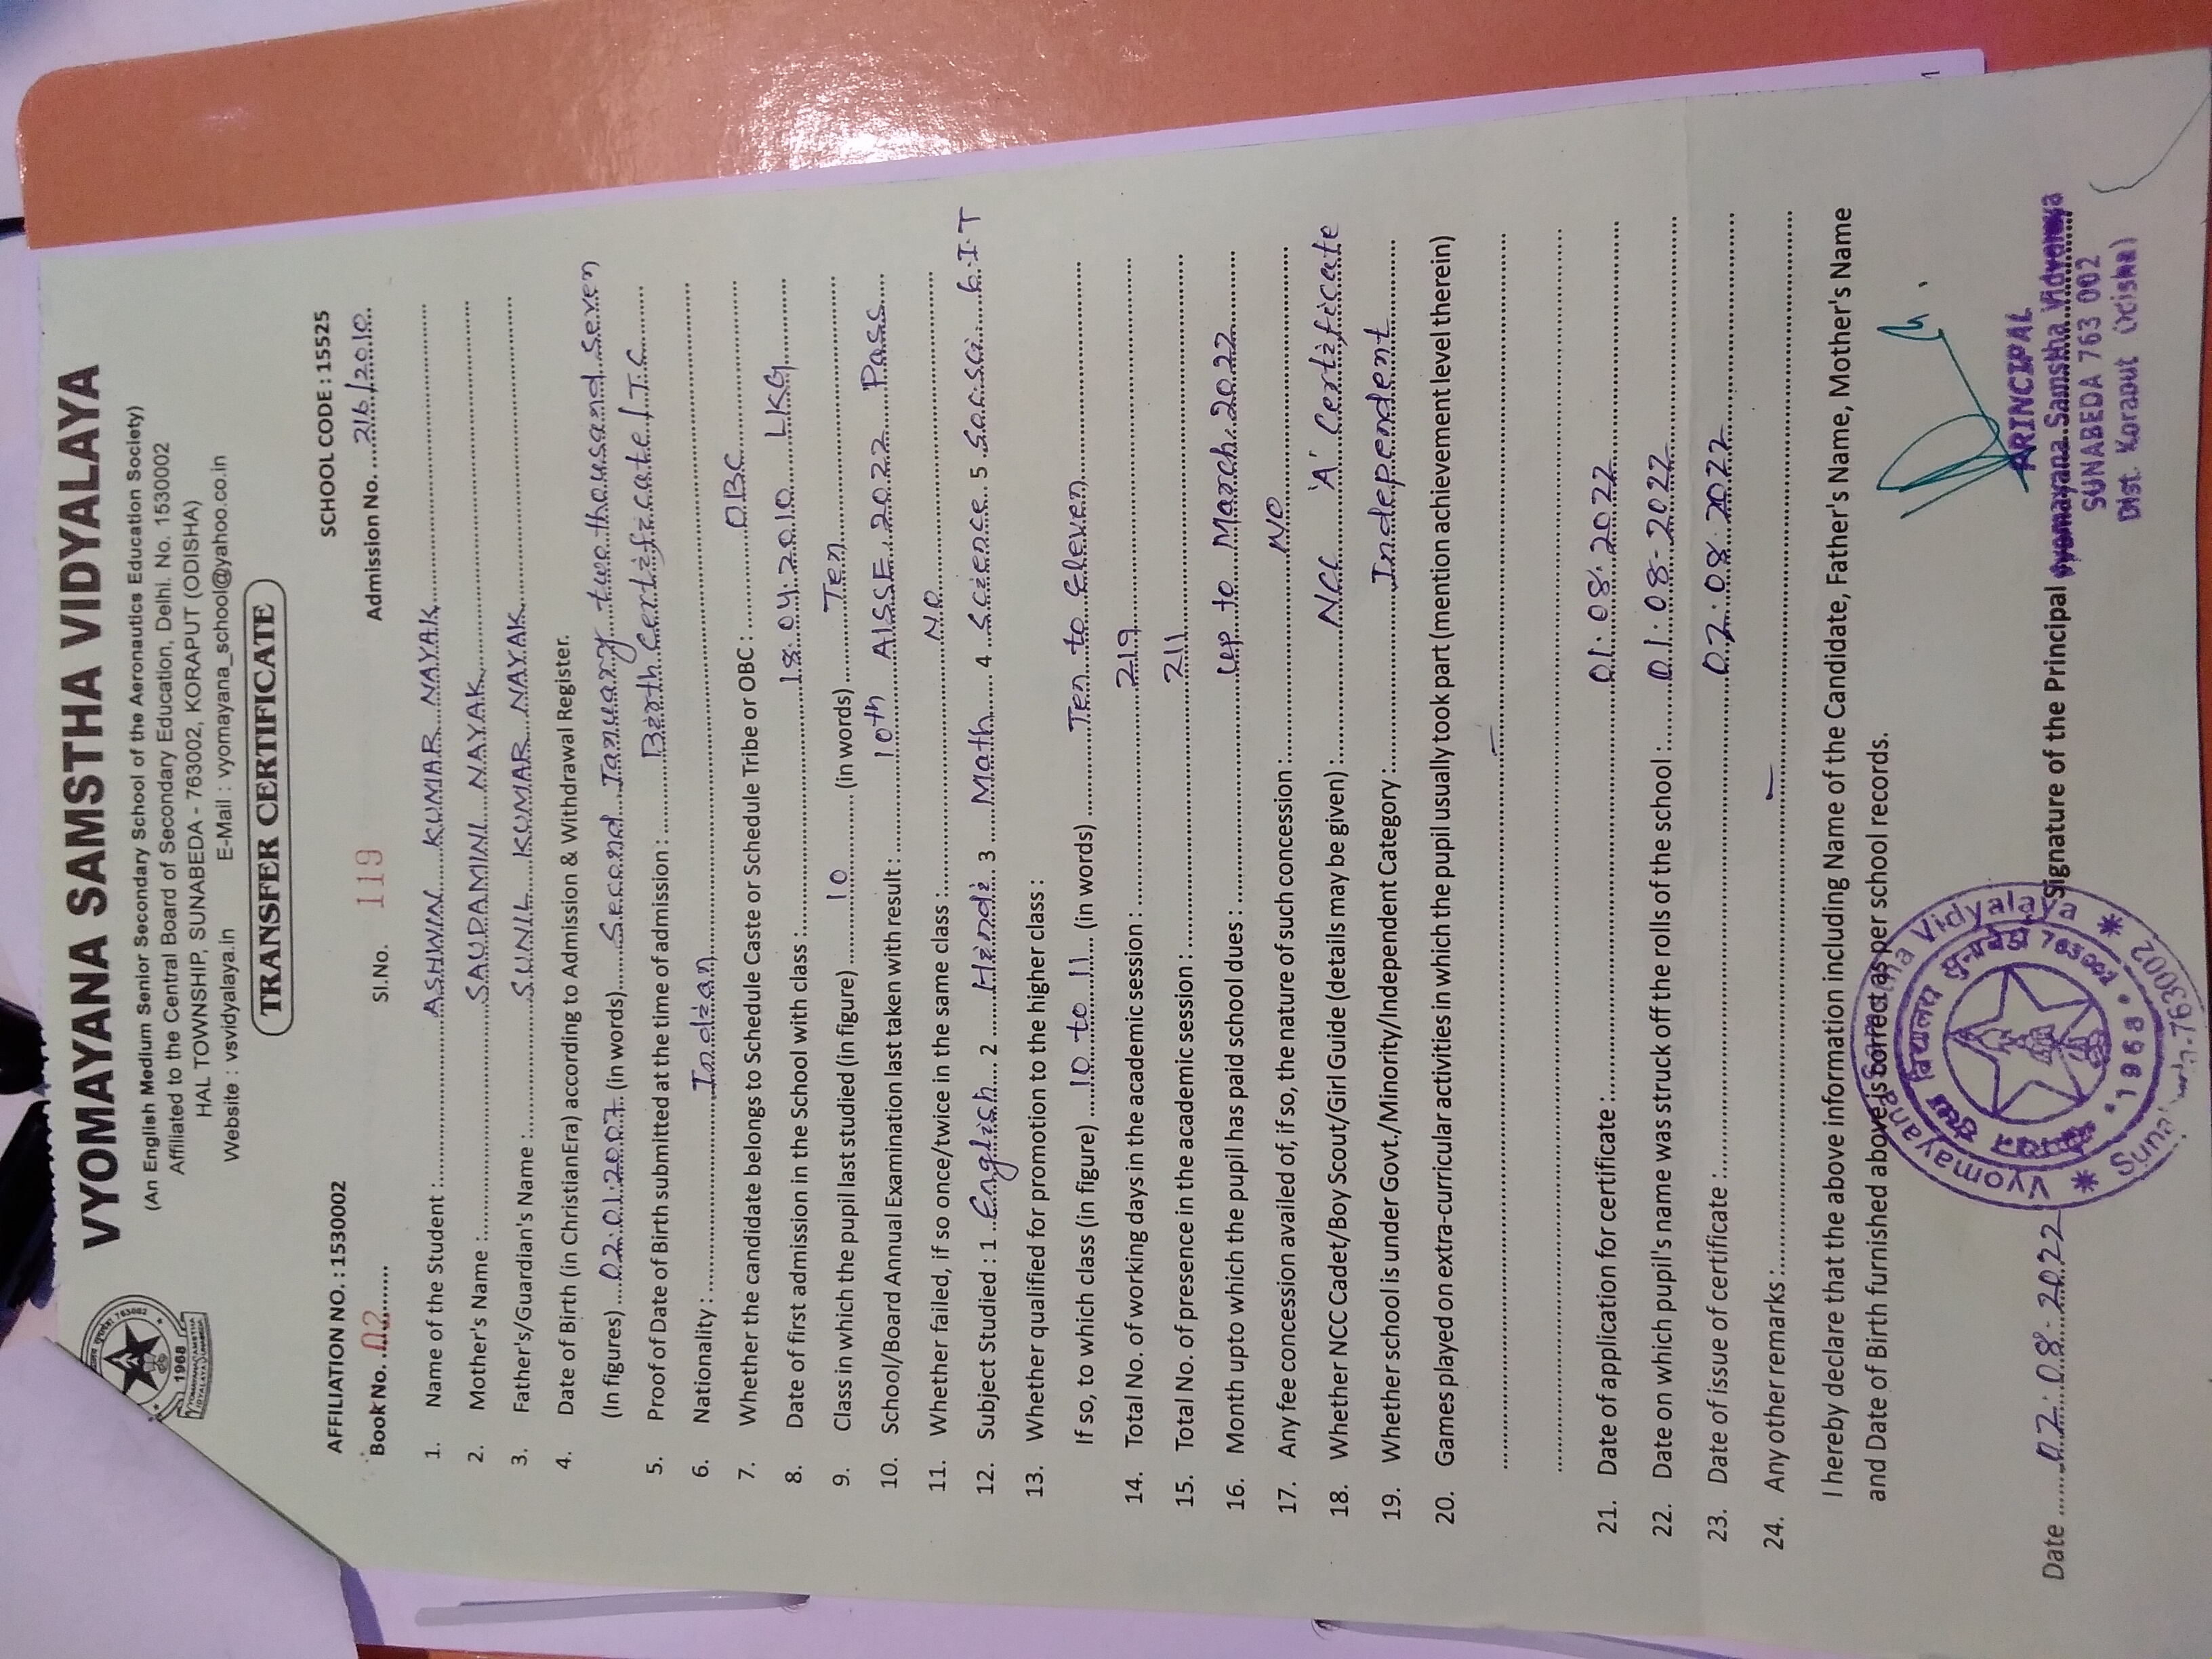 VYOMAYANA SAMSTHA VIDYALAYA
(An English Medium Senior Secondary School of the Aeronautics Education Society)
Affiliated to the Central Board of Secondary Education, Delhi. No. 1530002
HAL TOWNSHIP, SUNABEDA - 763002, KORAPUT (ODISHA)
Website : vsvidyalaya.in E-Mail : vyomayana_school@yahoo.co.in
1968
TRANSFER CERTIFICATE
AFFILIATION NO. : 1530002 SCHOOL CODE : 15525
Book No. 02 Sl.No. 119 Admission No. 216/2010
1. Name of the Student : ASHWINI KUMAR NAYAK
2. Mother's Name : SAUDAMINI NAYAK
3. Father's/Guardian's Name : SUNIL KUMAR NAYAK
4. Date of Birth (in ChristianEra) according to Admission & Withdrawal Register.
(In figures) 02.01.2007 (in words) Second January two thousand Seven
5. Proof of Date of Birth submitted at the time of admission : Birth Certificate / T.C
6. Nationality : Indian
7. Whether the candidate belongs to Schedule Caste or Schedule Tribe or OBC : OBC
8. Date of first admission in the School with class : 18.04.2010 LKG
9. Class in which the pupil last studied (in figure) 10 (in words) Ten
10. School/Board Annual Examination last taken with result : 10th AISSE 2022 Pass
11. Whether failed, if so once/twice in the same class : No
12. Subject Studied : 1 English 2 Hindi 3 Math 4 Science 5 Soc.Sci. 6 I.T
13. Whether qualified for promotion to the higher class :
If so, to which class (in figure) 10 to 11 (in words) Ten to Eleven
14. Total No. of working days in the academic session : 219
15. Total No. of presence in the academic session : 211
16. Month upto which the pupil has paid school dues : up to March. 2022
17. Any fee concession availed of, if so, the nature of such concession : NO
18. Whether NCC Cadet/Boy Scout/Girl Guide (details may be given) : NCC 'A' Certificate
19. Whether school is under Govt./Minority/Independent Category : Independent
20. Games played on extra-curricular activities in which the pupil usually took part (mention achievement level therein)
—
21. Date of application for certificate : 01.08.2022
22. Date on which pupil's name was struck off the rolls of the school : 01.08-2022
23. Date of issue of certificate : 02.08.2022
24. Any other remarks : —
I hereby declare that the above information including Name of the Candidate, Father's Name, Mother's Name
and Date of Birth furnished above is correct as per school records.
Vyomayana Samstha Vidyalaya
763002
1968
Date 02.08-2022 Signature of the Principal
PRINCIPAL
Vyomayana Samstha Vidyalaya
SUNABEDA 763 002
Dist. Koraput (Orisha)